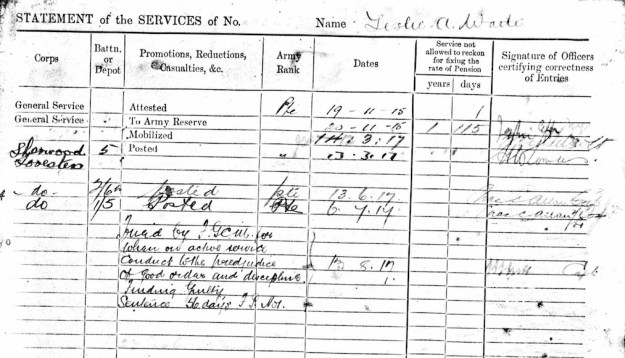 STATEMENT of the SERVICES of No. Name Leslie A. Wade
Corps
Battn. or Depot
Promotions, Reductions, Casualties, &c.
Army Rank
Dates
Service not allowed to reckon for fixing the rate of Pension
years days
Signature of Officers certifying correctness of Entries
General Service Attested Pte 19-11-15 1
General Service To Army Reserve 20-11-15 1 115
Mobilized 3.17
Sherwood 5 Posted " 3.17
Foresters
do 2/6th Posted Pte 13.6.17
do 1/5 Posted Pte 6.7.17
Tried by F.G.C.M. for
when on active service
Conduct to the predjudice 8.17
of good order and discipline.
Finding Guilty
Sentence days F.P. No1.